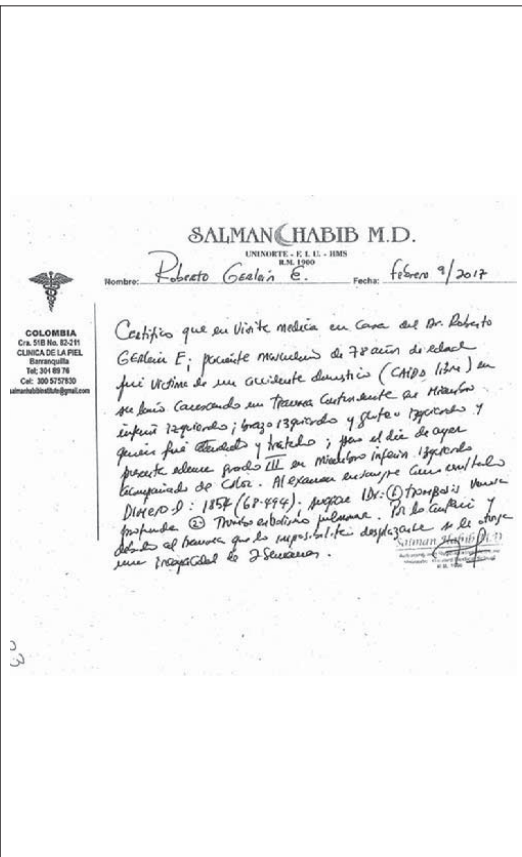 SALMAN HABIB M.D.
UNINORTE - F. I. U. - HMS
R.M. 1900
Nombre: Roberto Gerlein E. Fecha: febrero 9/2017
COLOMBIA
Cra. 51B No. 82-211
CLINICA DE LA PIEL
Barranquilla
Tel: 304 89 76
Cel: 300 5757930
salmanhabibinstitute@gmail.com
Certifico que en Visita medica en Casa del Dr. Roberto
GERlein E; paciente masculino de 78 años de edad
fué victima de un accidente domestico (CAIDA libre) en
su baño causando un Trauma Contundente en Miembro
inferior izquierdo; brazo izquierdo y gluteo izquierdo y
quien fué atendido y tratado; pero el dia de ayer
presente edema grado III en miembro inferior izquierdo
acompañado de Calor. Al examen
Dimero-D: 1854 (68-494). IDx: ① trombosis Venosa
profunda ② Trombo embolismo pulmonar. Por lo anterior y
debido al trauma que lo imposibilita desplazarse se le otorga
una incapacidad de 2 Semanas.
Salman Habib M.D.